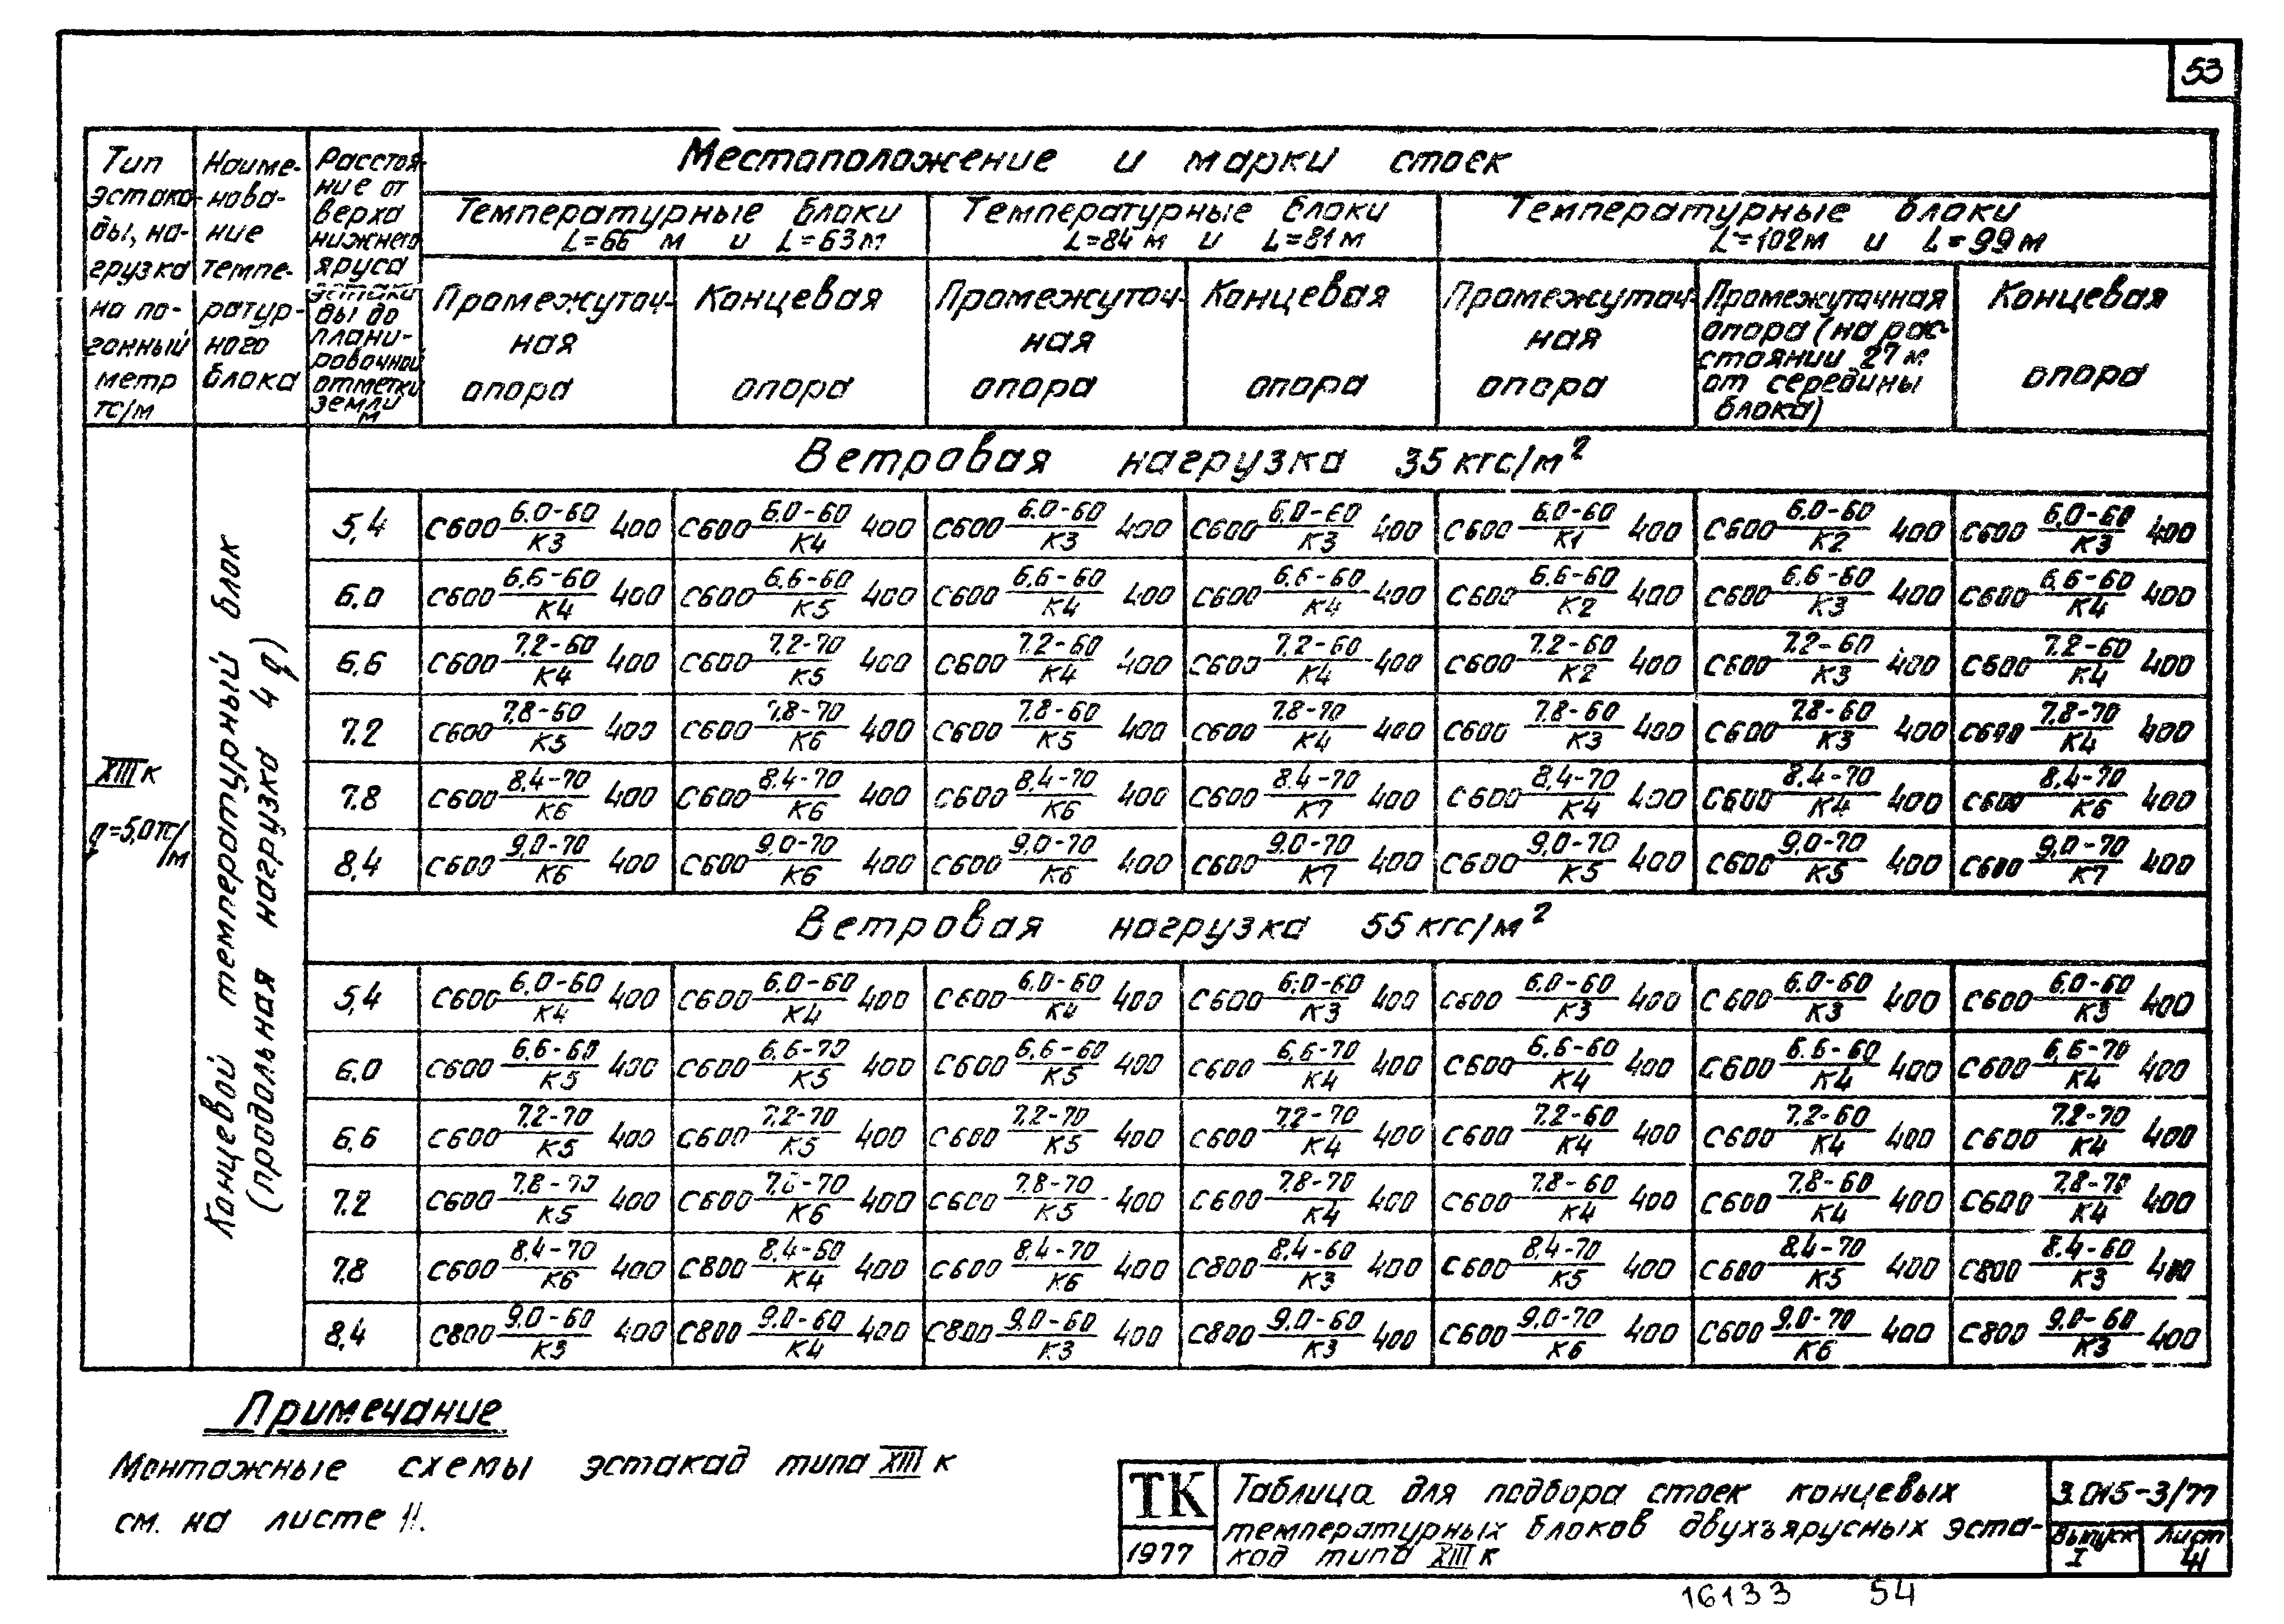 53
Тип эстакады, нагрузка на погонный метр тс/м
Наименование температурного блока
Расстояние от верха нижнего яруса эстакады до планировочной отметки земли м
Местоположение и марки стоек
Температурные блоки L=66 м и L=63м
Температурные блоки L=84м и L=81м
Температурные блоки L=102м и L=99м
Промежуточная опора
Концевая опора
Промежуточная опора
Концевая опора
Промежуточная опора
Промежуточная опора (на расстоянии 27м от середины блока)
Концевая опора
XIIIк
q=5,0тс/м
Концевой температурный блок
(продольная нагрузка 4 q)
Ветровая нагрузка 35кгс/м²
5,4 С600 6.0-60/К3 400 С600 6.0-60/К4 400 С600 6.0-60/К3 400 С600 6.0-60/К3 400 С600 6.0-60/К1 400 С600 6.0-60/К2 400 С600 6.0-60/К3 400
6.0 С600 6.6-60/К4 400 С600 6.6-60/К5 400 С600 6.6-60/К4 400 С600 6.6-60/К4 400 С600 6.6-60/К2 400 С600 6.6-60/К3 400 С600 6.6-60/К4 400
6,6 С600 7.2-60/К4 400 С600 7.2-70/К5 400 С600 7.2-60/К4 400 С600 7.2-60/К4 400 С600 7.2-60/К2 400 С600 7.2-60/К3 400 С600 7.2-60/К4 400
7.2 С600 7.8-60/К5 400 С600 7.8-70/К6 400 С600 7.8-60/К5 400 С600 7.8-70/К4 400 С600 7.8-60/К3 400 С600 7.8-60/К3 400 С600 7.8-70/К4 400
7.8 С600 8,4-70/К6 400 С600 8.4-70/К6 400 С600 8,4-70/К6 400 С600 8.4-70/К7 400 С600 8,4-70/К4 400 С600 8.4-70/К4 400 С600 8,4-70/К6 400
8,4 С600 9.0-70/К6 400 С600 9.0-70/К6 400 С600 9.0-70/К6 400 С600 9.0-70/К7 400 С600 9.0-70/К5 400 С600 9.0-70/К5 400 С600 9.0-70/К7 400
Ветровая нагрузка 55кгс/м²
5,4 С600 6.0-60/К4 400 С600 6.0-60/К4 400 С600 6.0-60/К4 400 С600 6.0-60/К3 400 С600 6.0-60/К3 400 С600 6.0-60/К3 400 С600 6.0-60/К3 400
6.0 С600 6.6-60/К5 400 С600 6.6-70/К5 400 С600 6.6-60/К5 400 С600 6,6-70/К4 400 С600 6.6-60/К4 400 С600 6.6-60/К4 400 С600 6,6-70/К4 400
6,6 С600 7.2-70/К5 400 С600 7.2-70/К5 400 С600 7.2-70/К5 400 С600 7.2-70/К4 400 С600 7.2-60/К4 400 С600 7.2-60/К4 400 С600 7.2-70/К4 400
7.2 С600 7.8-70/К5 400 С600 7.8-70/К6 400 С600 7.8-70/К5 400 С600 7.8-70/К4 400 С600 7.8-60/К4 400 С600 7.8-60/К4 400 С600 7.8-70/К4 400
7.8 С600 8,4-70/К6 400 С800 8,4-60/К4 400 С600 8,4-70/К6 400 С800 8.4-60/К3 400 С600 8,4-70/К5 400 С600 8.4-70/К5 400 С800 8.4-60/К3 400
8,4 С800 9.0-60/К3 400 С800 9.0-60/К4 400 С800 9.0-60/К3 400 С800 9.0-60/К3 400 С600 9.0-70/К6 400 С600 9.0-70/К6 400 С800 9.0-60/К3 400
Примечание
Монтажные схемы эстакад типа XIII к
см. на листе 11.
ТК
1977
Таблица для подбора стоек концевых
температурных блоков двухъярусных эста-
кад типа XIII к
3.015-3/77
Выпуск I
Лист 41
16133 54